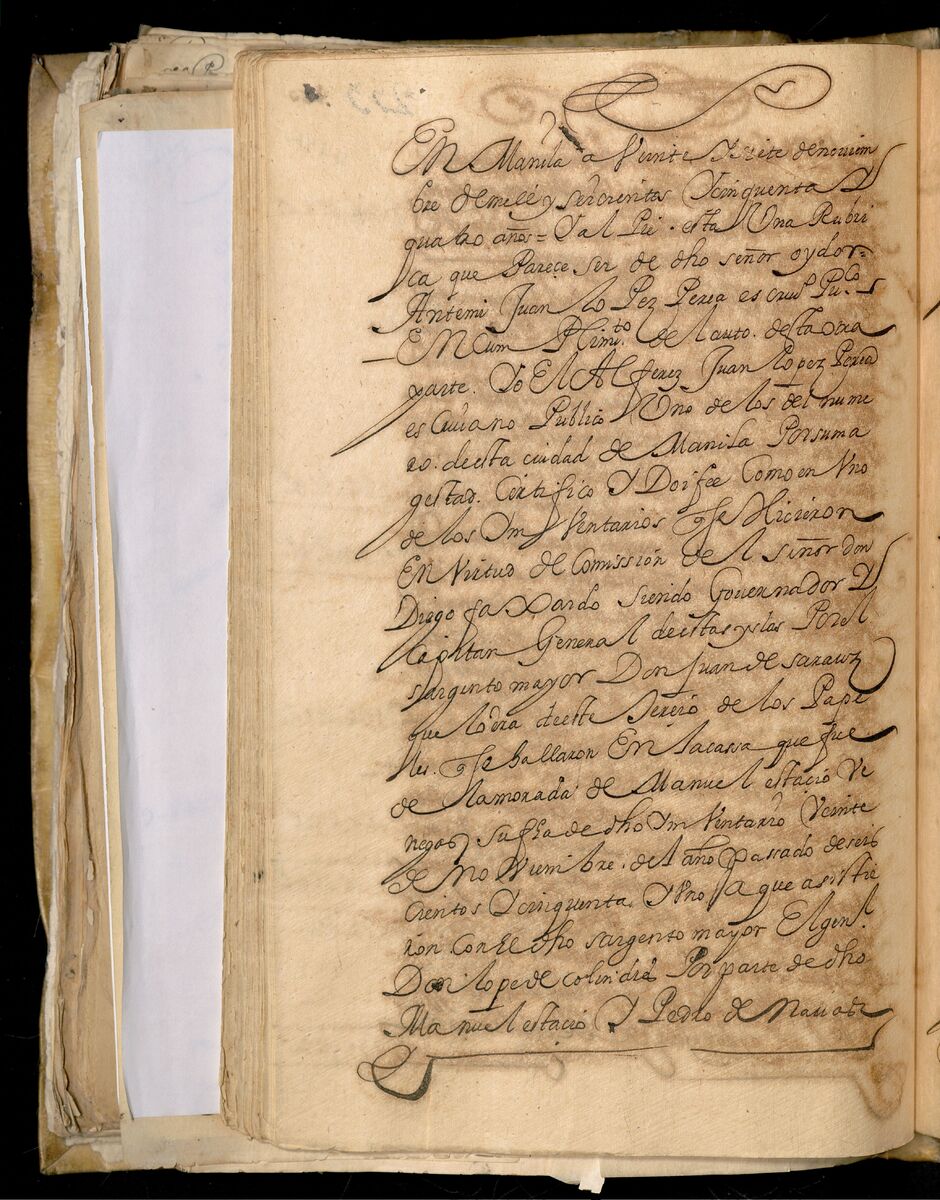 En Manila a Veinte Y siete de noviem
bre de mill y seiscientos Ycinquenta Y
quatro años = Y al Pie esta Una Rubri
ca que Pareçe ser de dho señor oydor =
Antemi Juan lo Pez Perea escriu.º Pu.co
En Cum Plimi.to del auto desta otra
parte. Yo El Alferez Juan lopez Perea
escriuano Publico Uno de los del nume
ro. de esta ciudad de Manila Por su ma
gestad. Certifico Y Doi fee Como en Vno
de los Ym Ventarios q se Hicieron
En Virtud de Comission del señor don
Diego faxardo siendo Gouernador Y
Capitan General de estas yslas Por El
sargento mayor Don Juan de
que lo era de este de los Pape
les. q se hallaron En la cassa que fue
de la morada de Manuel estacio Ve
negas su fha de dho Ym Ventario Veinte
de No Viembre. del año Passado de seis
cientos Ycinquenta. Y Vno a que asistie
ron con El dho sargento mayor El gen.l
Don lope de colindres Por parte de dho
Manuel estacio Y Pedro de